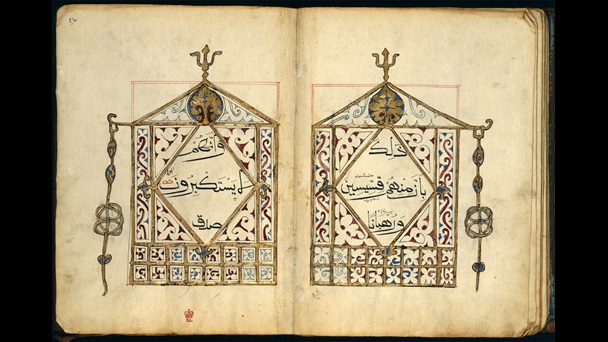 ذلك
بأن منهم قسيسين
ورهبانا
وأنهم
لا يستكبرون
صدق